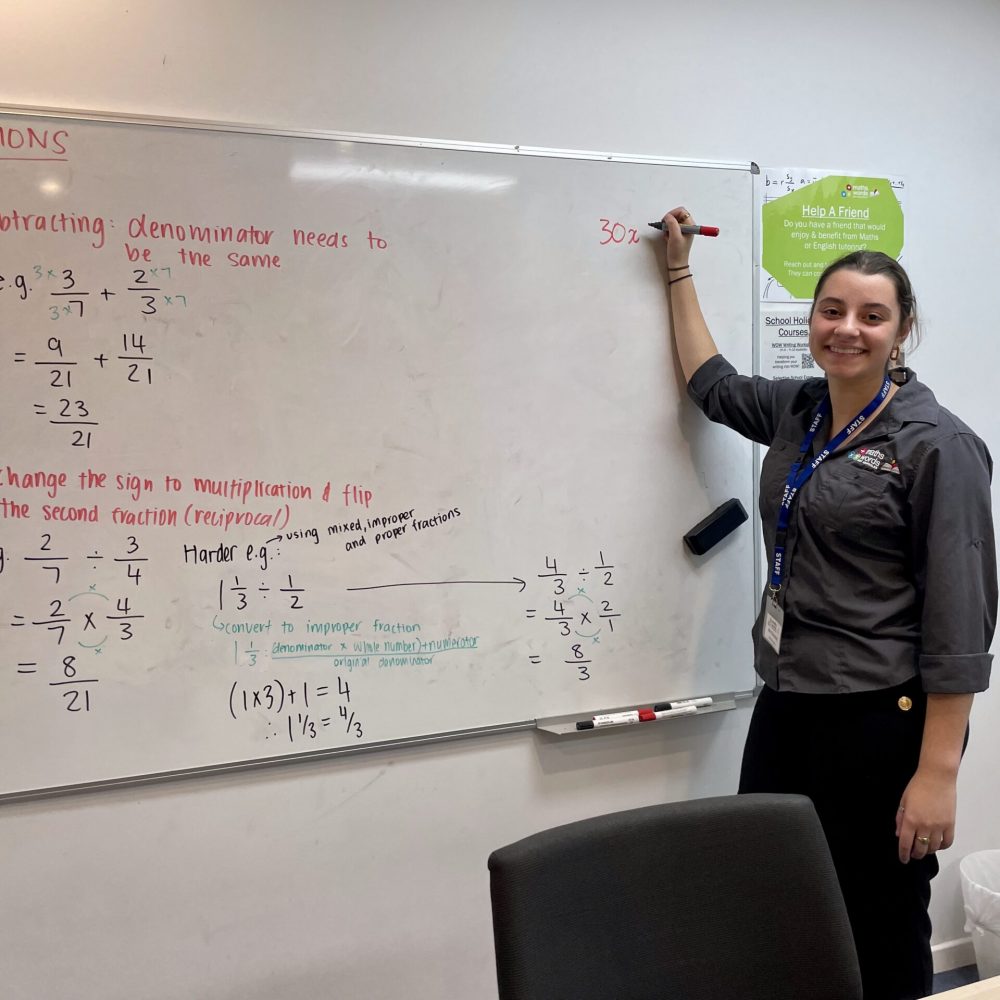 IONS
btracting: denominator needs to
be the same
e.g. 3× 3/3×7 + 2×7/3×7
= 9/21 + 14/21
= 23/21
change the sign to multiplication & flip
the second fraction (reciprocal)
g. 2/7 ÷ 3/4
= 2/7 × 4/3
= 8/21
Harder e.g.: → using mixed, improper
and proper fractions
1 1/3 ÷ 1/2
convert to improper fraction
1 1/3 : (denominator × whole number)+numerator/original denominator
(1×3)+1 = 4
∴ 1 1/3 = 4/3
4/3 ÷ 1/2
= 4/3 × 2/1
= 8/3
30x
maths
words
Help A Friend
Do you have a friend that would
enjoy & benefit from Maths
or English tutoring?
Reach out and
They can
School Holi
Courses
WOW Writing Works
STAFF
STAFF
STAFF
STAFF
maths
words